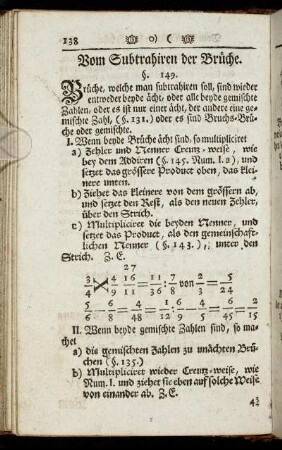 138 )o(
Vom Subtrahiren der Brüche.
§. 149.
Brüche, welche man subtrahiren soll, sind wieder
entweder beyde ächt, oder alle beyde gemischte
Zahlen, oder es ist nur einer ächt, der andere eine ge-
mischte Zahl, (§. 131.) oder es sind Bruchs-Brü-
che oder gemischte.
I. Wenn beyde Brüche ächt sind, so multipliciret
a) Zehler und Nenner Creutz-weise, wie
bey dem Addiren (§. 145. Num. I. a), und
setzet das grössere Product oben, das klei-
nere unten.
b) Ziehet das kleinere von dem grössern ab,
und setzet den Rest, als den neuen Zehler,
über den Strich.
c) Multipliciret die beyden Nenner, und
setzet das Product, als den gemeinschaft-
lichen Nenner (§. 143.), unter den
Strich. Z. E.
27
3 4 16 11 7 von 2 5
4 9 11 36 8 3 24
5 6 4 1 6 4 2
6 8 48 12 9 5 45 15
II. Wenn beyde gemischte Zahlen sind, so ma-
chet
a) die gemischten Zahlen zu unächten Brü-
chen (§. 135.)
b) Multipliciret wieder Creutz-weise, wie
Num. I. und ziehet sie eben auf solche Weise
von einander ab. Z. E.